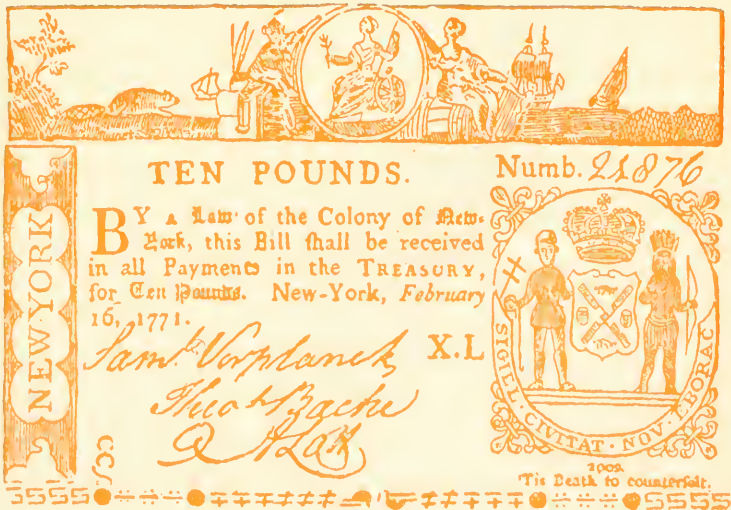 TEN POUNDS.
Numb. 21876
BY A Law of the Colony of New-
York, this Bill ſhall be received
in all Payments in the TREASURY,
for Ten Pounds. New-York, February
16, 1771.
X.L
Saml. Verplanck
Theot. Bache
NEW YORK
SIGILL · CIVITAT · NOV · EBORAC
'Tis Death to counterfeit.